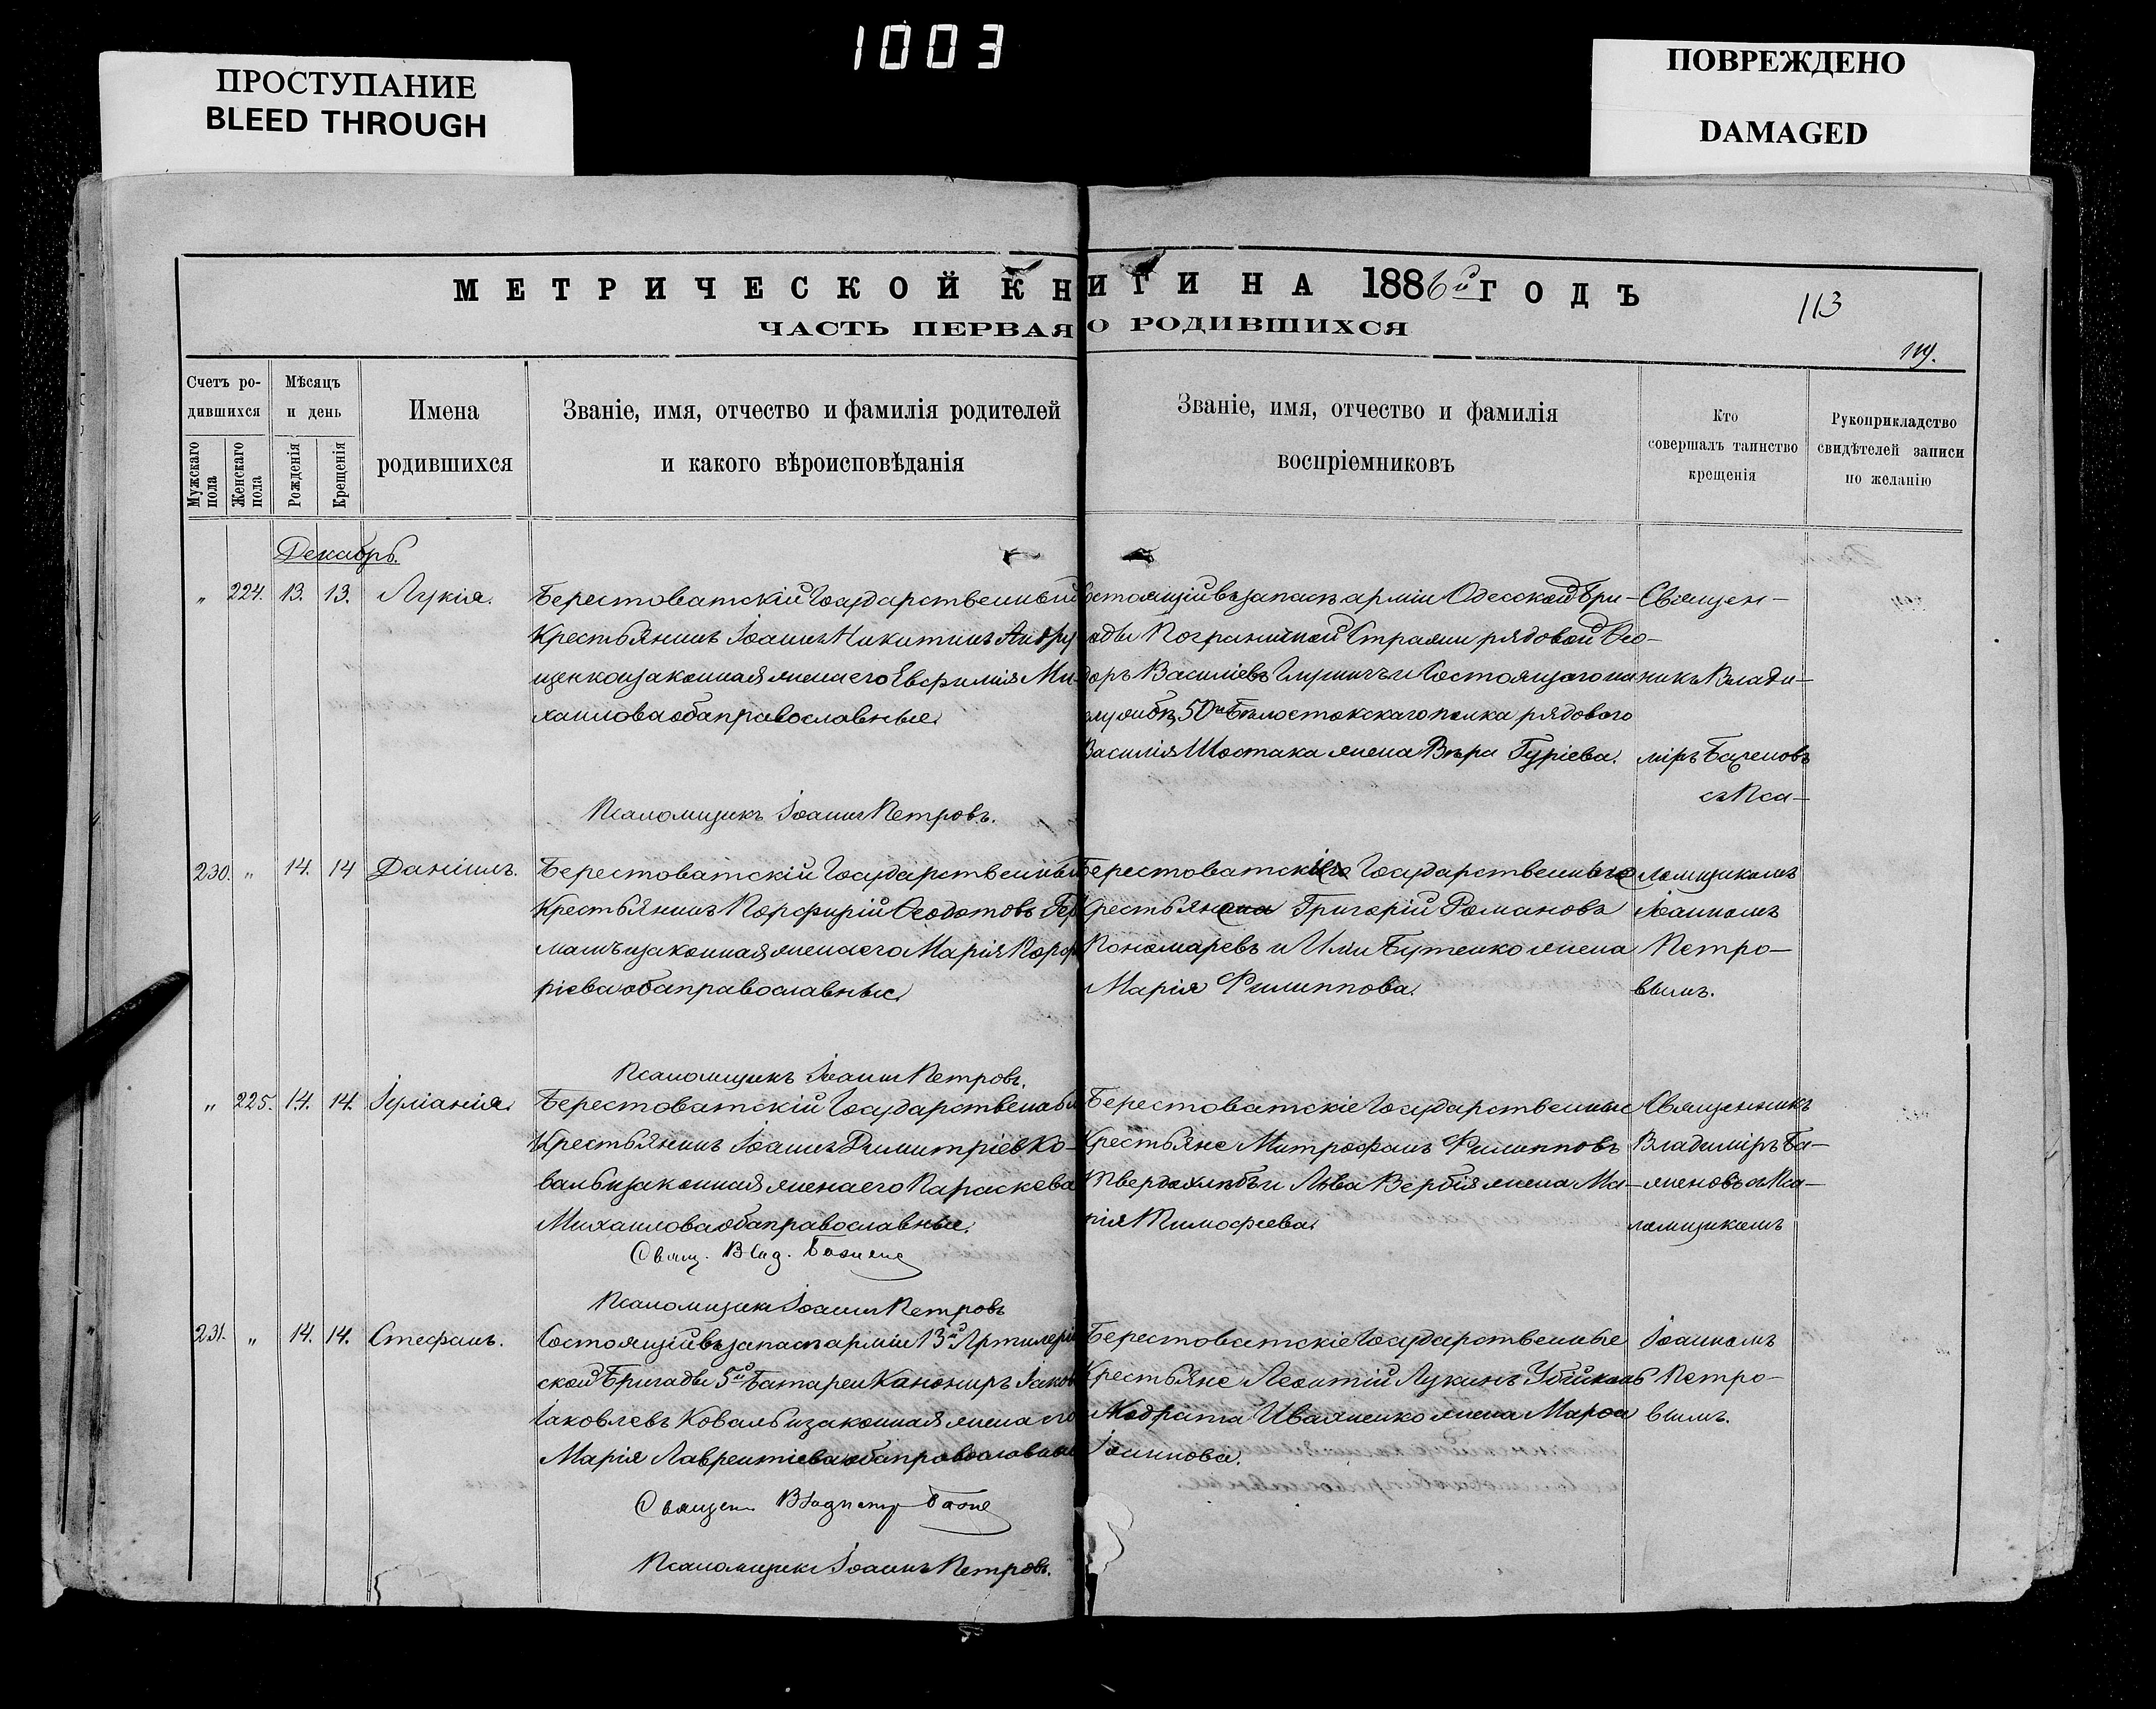 1003
ПРОСТУПАНИЕ
BLEED THROUGH
ПОВРЕЖДЕНО
DAMAGED
МЕТРИЧЕСКОЙ КНИГИ НА 1886й ГОДЪ
113
ЧАСТЬ ПЕРВАЯ О РОДИВШИХСЯ
Счетъ ро-
дившихся
Мужскаго пола
Женскаго пола
Мѣсяцъ
и день
Рожденія
Крещенія
Имена
родившихся
Званіе, имя, отчество и фамилія родителей
и какого вѣроисповѣданія
Званіе, имя, отчество и фамилія
воспріемниковъ
Кто
совершалъ таинство
крещенія
Рукоприкладство
свидѣтелей записи
по желанію
Декабрь.
" 224. 13. 13. Лукія.
Берестоватскій Государственный
Крестьянинъ Іоаннъ Никитинъ Андру
щенко и законная жена его Евфимія Ми-
хаилова оба православные.
Псаломщикъ Іоаннъ Петровъ.
состоящій въ запасѣ арміи Одесской Бри-
гады Пограничной Стражи рядовой Ѳео-
доръ Василіевъ и Состоящаго на
службѣ, 50го Бѣлостокскаго полка рядового
Василія Шостака жена Вѣра Гуріева.
Священ-
никъ Влади-
міръ Баженовъ
съ Пса-
230. " 14. 14 Даніилъ.
Берестоватскій Государственный
Крестьянинъ Порфирій Ѳеодотовъ Гер
манъ и законная жена его Марія Порфи
ріева оба православные.
Псаломщикъ Іоаннъ Петровъ.
Берестоватскіе Государственные
Крестьяне Григорій Романовъ
Пономаревъ и Бутенко жена
Марія Филиппова.
ломщикомъ
Іоанномъ
Петро-
вымъ.
" 225. 14. 14. Іуліанія.
Берестоватскій Государственный
Крестьянинъ Іоаннъ Димитріевъ Ко-
валь и законная жена его Параскева
Михаилова оба православные.
Свящ. Влад. Баженов
Псаломщикъ Іоаннъ Петровъ
Берестоватскіе Государственные
Крестьяне Митрофанъ Филипповъ
Твердохлѣбъ и Льва Вербія жена Ма-
рія Тимофеева.
Священникъ
Владиміръ Ба-
женовъ съ Пса-
ломщикомъ
231. " 14. 14. Стефанъ.
Состоящій въ запасѣ арміи 13й Артилерій
ской Бригады 5й Батареи Канониръ Іаковъ
Іаковлевъ Коваль и законная жена его
Марія Лаврентіева оба православные
Священ Владимір Баже
Псаломщикъ Іоаннъ Петровъ.
Берестоватскіе Государственные
Крестьяне Леонтій Лукинъ
и Кодрата Иваженко жена Марфа
Іоаннова.
Іоанномъ
Петро-
вымъ.